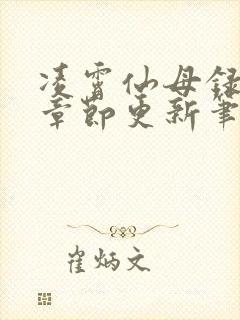 凌霄仙母録
章節更新筆
崔炳文